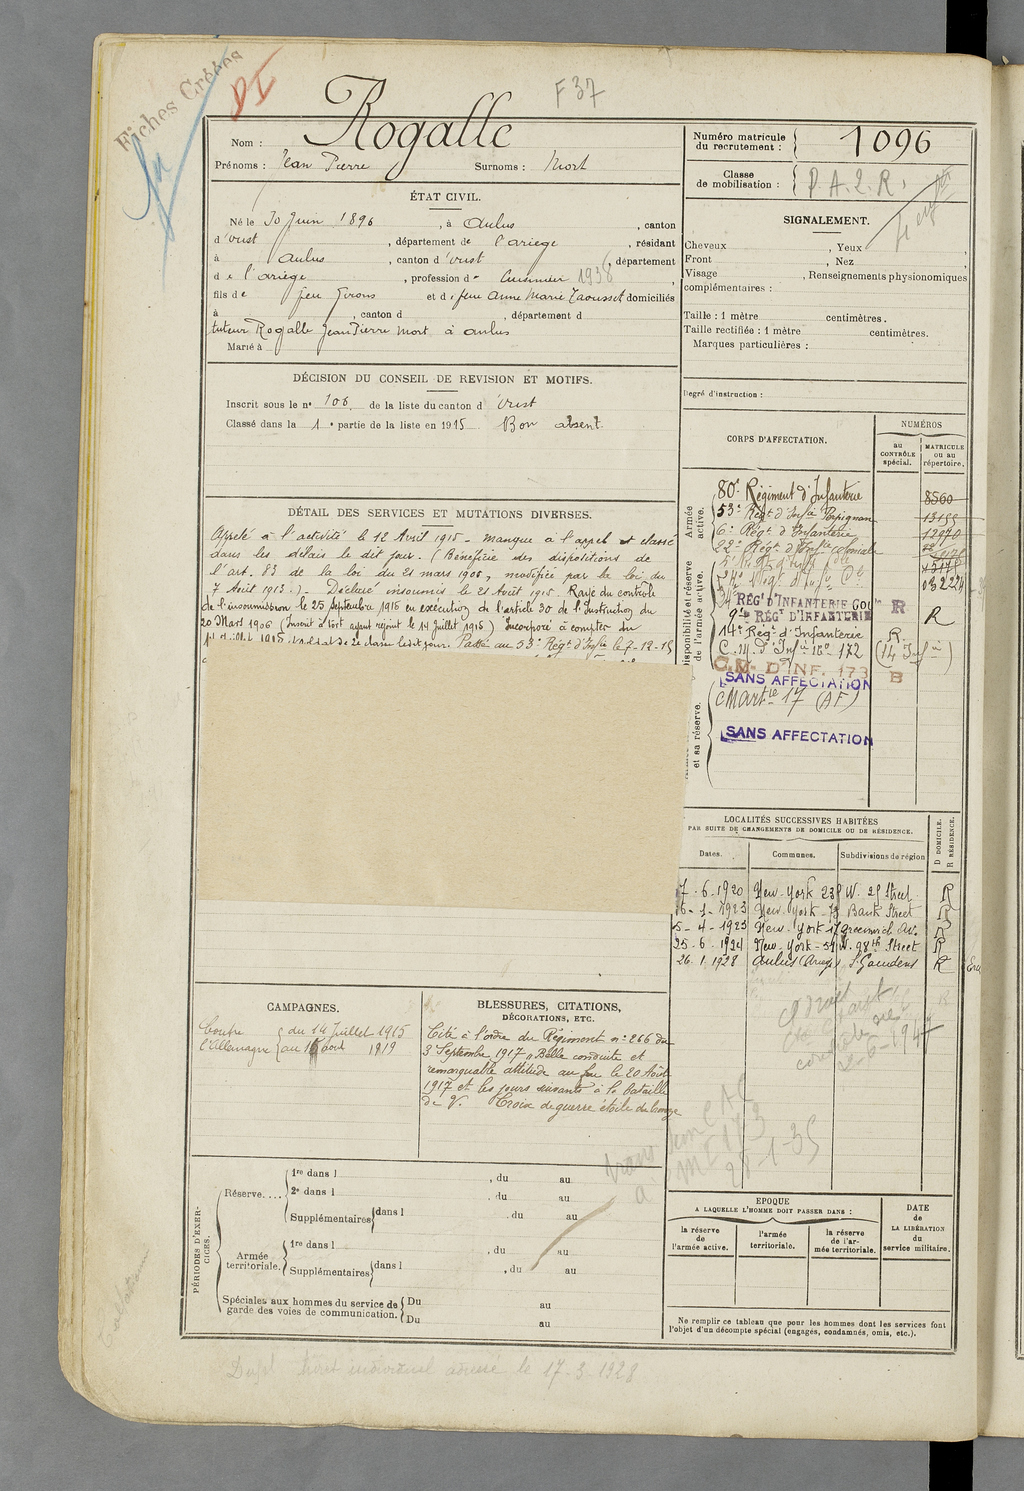 Fiches Créées
DI
F 37
Nom : Rogalle
Prénoms : Jean Pierre Surnoms : Mort
Numéro matricule
du recrutement : 1096
Classe
de mobilisation : P.A.2.R.
ÉTAT CIVIL.
Né le 30 Juin 1896, à Aulus, canton
d'oust, département de l'ariege, résidant
à Aulus, canton d'oust, département
de l'ariège, profession de Cuisinier 1938,
fils de feu Girons et de feue Anne Marie Taousset domiciliés
à , canton d , département d
tuteur Rogalle Jean Pierre Mort à aulus
Marié à
SIGNALEMENT.
Cheveux , Yeux ,
Front , Nez ,
Visage , Renseignements physionomiques
complémentaires :
Taille : 1 mètre centimètres.
Taille rectifiée : 1 mètre centimètres.
Marques particulières :
Degré d'instruction :
DÉCISION DU CONSEIL DE REVISION ET MOTIFS.
Inscrit sous le no 106 de la liste du canton d'oust
Classé dans la 1e partie de la liste en 1915 Bon absent
DÉTAIL DES SERVICES ET MUTATIONS DIVERSES.
Appelé à l'activité le 12 Avril 1915 - manque à l'appel et classé
dans les délais le dit jour. (Bénéficie des dispositions de
l'art. 83 de la loi du 21 mars 1905, modifiée par la loi du
7 Août 1913.) - Déclaré insoumis le 21 Août 1915 Rayé du contrôle
de l'insoumission le 25 Septembre 1915 en exécution de l'article 30 de l'Instruction du
20 Mars 1906 (Inscrit à tort ayant rejoint le 14 Juillet 1915) Incorporé à compter du
Passé au 53e Régt d'Infie le 7-12-15
CORPS D'AFFECTATION.
NUMÉROS
au
CONTRÔLE
spécial.
MATRICULE
ou au
répertoire.
Armée
active.
80e Régiment d'Infanterie 8560
53e Régt d'Infie Perpignan 13155
6e Régt d'Infanterie 12970
22e Régt d'Infie Coloniale
RÉGt D'INFANTERIE COLle R
9e RÉGt D'INFANTERIE R
14e Régt d'Infanterie R.
C.M. d'Infie no 172 (14 Infie)
C.M. D'INF. 173 B
SANS AFFECTATION
CMart le 17 (AF)
SANS AFFECTATION
Disponibilité et réserve
de l'armée active.
et sa réserve.
LOCALITÉS SUCCESSIVES HABITÉES
PAR SUITE DE CHANGEMENTS DE DOMICILE OU DE RÉSIDENCE.
Dates. Communes. Subdivisions de région
D DOMICILE.
R RÉSIDENCE.
7-6-1920 New-York 239 W. 25 Street R
6-1-1923 New-York-73 Bank Street R
5-4-1923 New-York 17 Greenwich Av. R
25-6-1924 New-York-59 W. 98th Street R
26.1.1928 Aulus (Ariège) St Gaudens R
CAMPAGNES.
Contre
l'Allemagne
du 14 Juillet 1915
au 15 août 1919
BLESSURES, CITATIONS,
DÉCORATIONS, ETC.
Cité à l'ordre du Régiment no 266 du
3 Septembre 1917 "Belle conduite et
remarquable attitude au feu le 20 Août
1917 et les jours suivants à la bataille
de V. Croix de guerre étoile de bronze
28-1-35
PÉRIODES D'EXERCICES.
Réserve....
1re dans l , du au
2e dans l , du au
Supplémentaires dans l , du au
Armée
territoriale.
1re dans l , du au
Supplémentaires dans l , du au
Spéciales aux hommes du service de
garde des voies de communication.
Du au
Du au
EPOQUE
A LAQUELLE L'HOMME DOIT PASSER DANS :
la réserve
de
l'armée active.
l'armée
territoriale.
la réserve
de l'ar-
mée territoriale.
DATE
de
LA LIBÉRATION
du
service militaire.
Ne remplir ce tableau que pour les hommes dont les services font
l'objet d'un décompte spécial (engagés, condamnés, omis, etc.).
livret individuel adressé le 17-3-1928